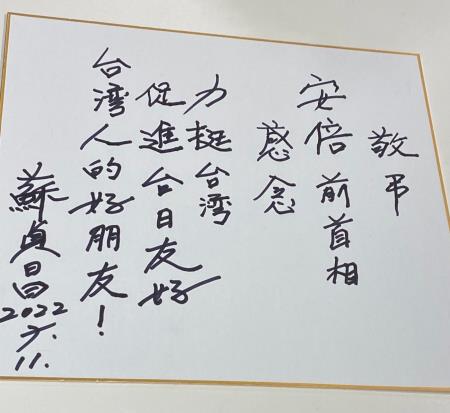 敬弔
安倍前首相
感念
力挺台湾
促進台日友好
台湾人的好朋友!
蘇貞昌2022 7. 11.